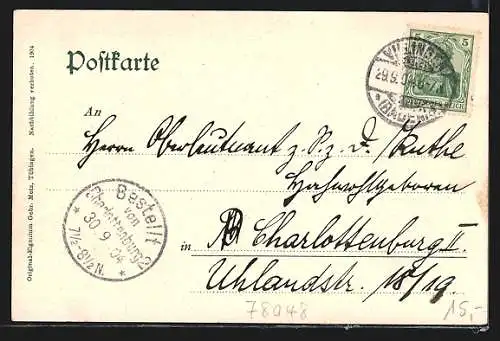 Original-Eigentum Gebr. Metz, Tübingen. Nachbildung verboten. 1904
Postkarte
5
VILLINGEN
29.9.04
(BADEN)
An
Herrn Oberleutnant z. S. z. D.
Hochwohlgeboren
in
Charlottenburg II.
Uhlandstr. 18/19.
Bestellt
von
Charlottenburg 2
30.9.04
* 7 1/2-8 1/2 N. *
78048
15,-